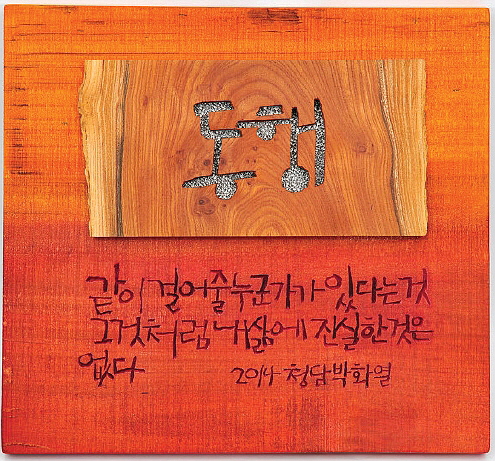 동행
같이 걸어줄 누군가가 있다는 것
그것처럼 내 삶에 진실한 것은
없다
2014 청담 박화열